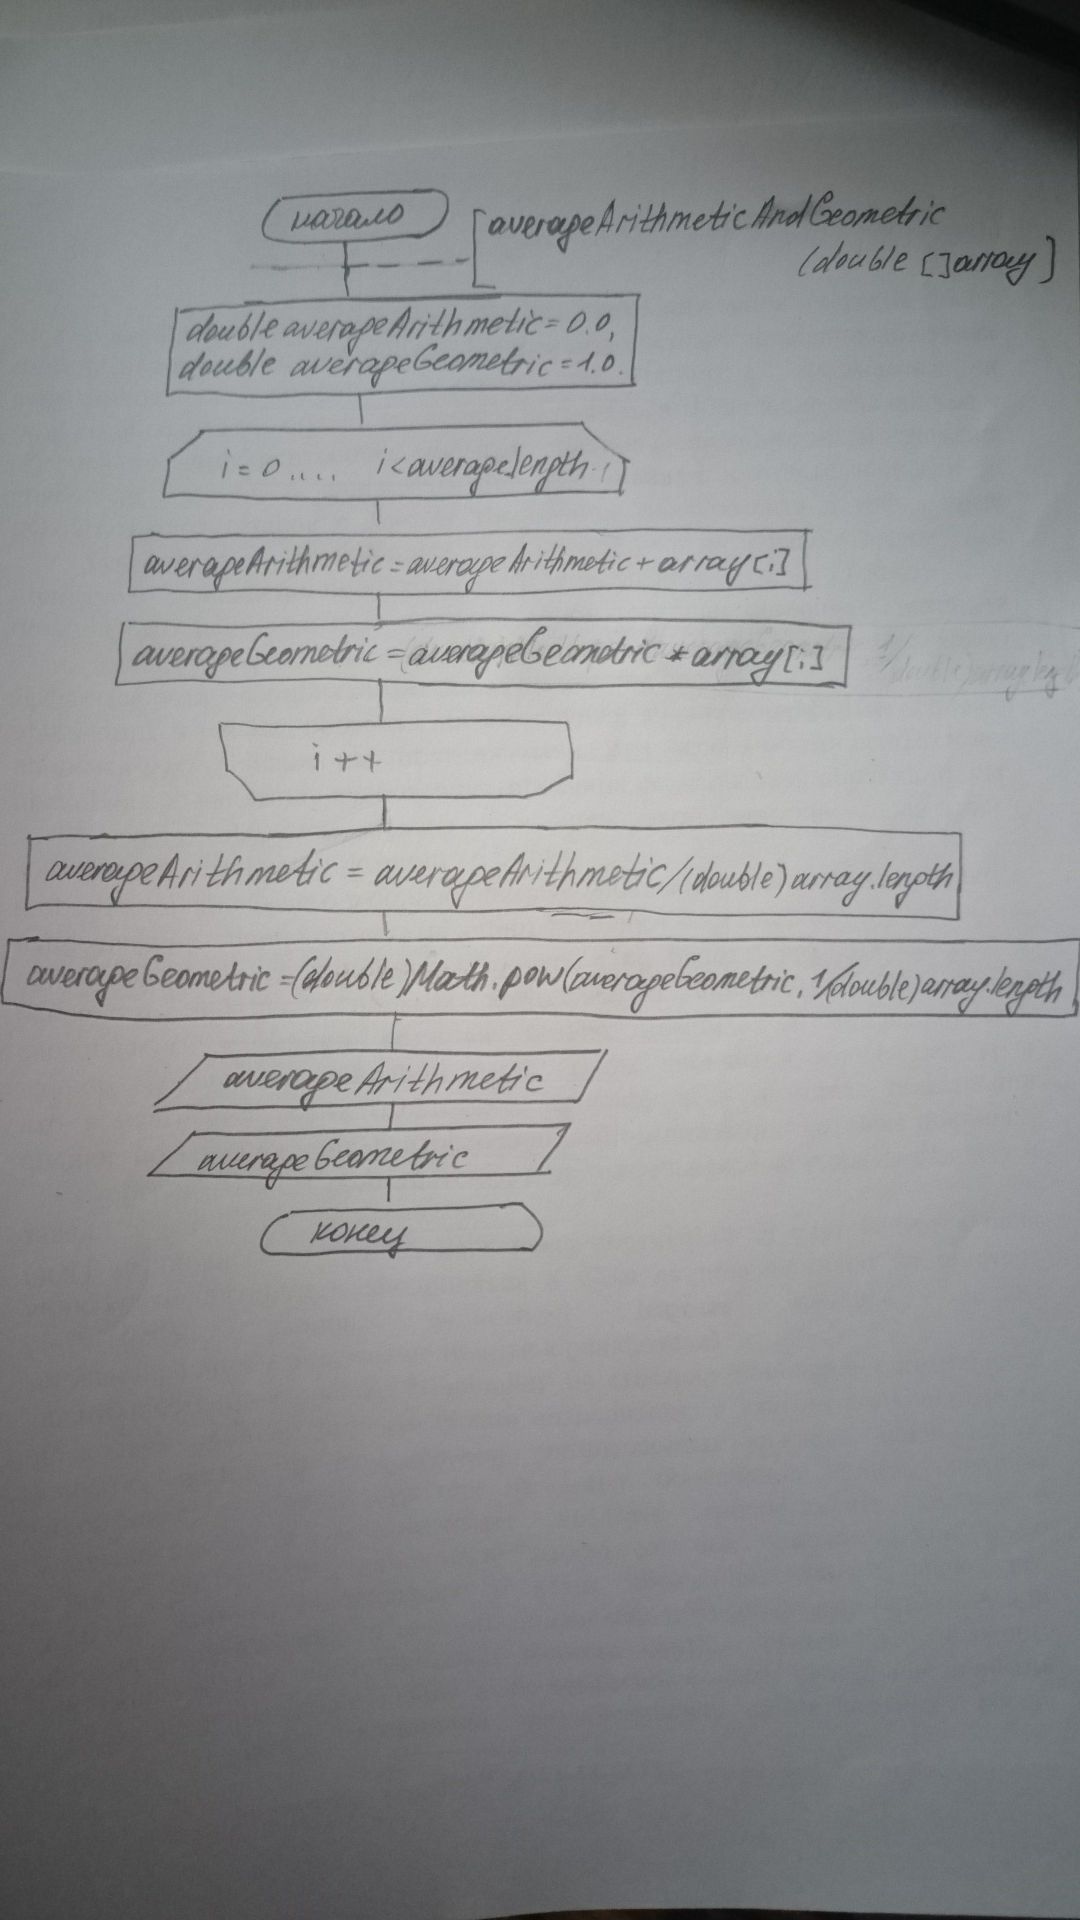 начало
averageArithmeticAndGeometric
(double []array]
double averageArithmetic=0.0,
double averageGeometric=1.0.
i=0.... i<average.length
averageArithmetic=averageArithmetic+array[i]
averageGeometric=averageGeometric*array[i]
i++
averageArithmetic = averageArithmetic/(double)array.length
averageGeometric=(double)Math.pow(averageGeometric, 1/(double)array.length
averageArithmetic
averageGeometric
конец